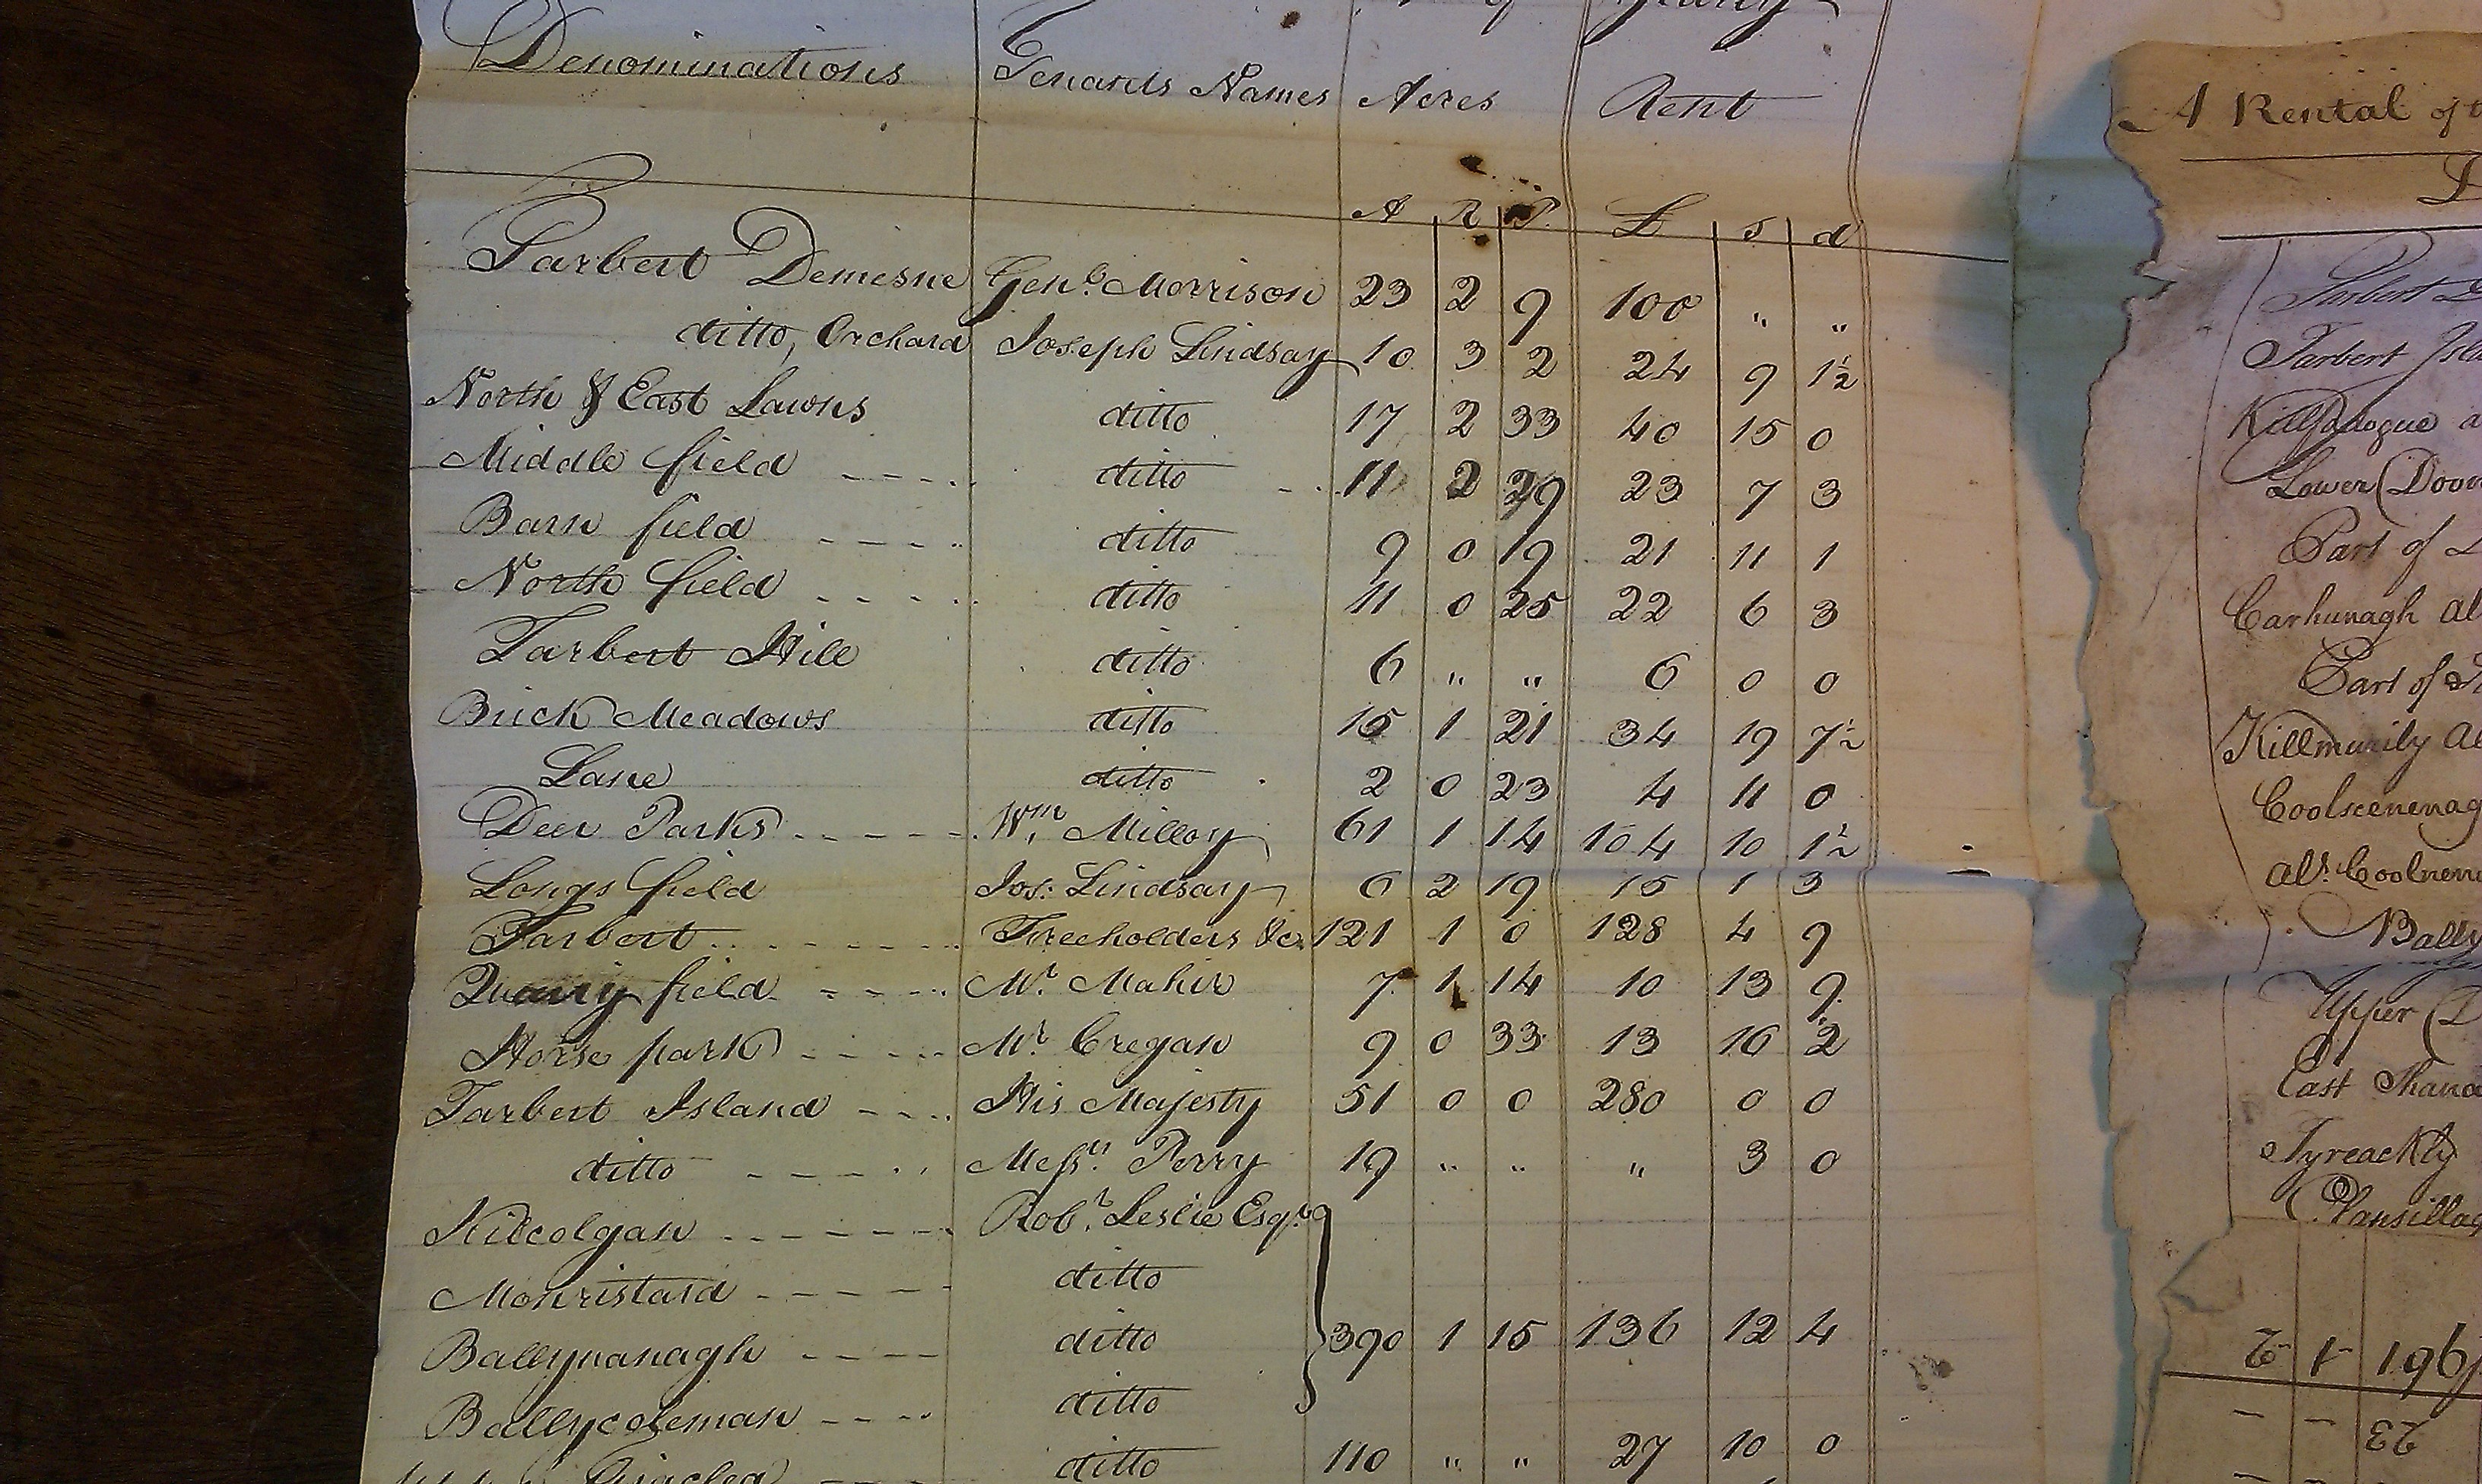 of Yearly
Denominations Tenants Names Acres Rent
A R P. £ s d
Tarbert Demesne Genl. Morrison 23 2 9 100 " "
ditto, Orchard Joseph Lindsay 10 3 2 24 9 1½
North & East Lawns ditto 17 2 33 40 15 0
Middle field ---- ditto 11 2 29 23 7 3
Barn field ---- ditto 9 0 19 21 11 1
North field ---- ditto 11 0 25 22 6 3
Tarbert Hill ditto 6 " " 6 0 0
Brick Meadows ditto 15 1 21 34 19 7½
Lane ditto 2 0 23 4 11 0
Deer Parks ----- Wm. Milloy 61 1 14 104 10 1½
Longs field Jos: Lindsay 6 2 19 15 1 3
Tarbert ------ Freeholders &c. 121 1 0 128 4 9
Quarry field ---- Mr. Mahir 7 1 14 10 13 9
Horse park ---- Mr. Cregan 9 0 33 13 16 2
Tarbert Island ---- His Majesty 51 0 0 280 0 0
ditto ---- Messrs. Perry 19 " " " 3 0
Kilcolgan ------ Robt. Leslie Esqr.
Monristard ----- ditto
Ballynanagh ---- ditto 390 1 15 136 12 4
Ballycoleman ---- ditto
ditto 110 " " 27 10 0
A Rental of
Tarbert
Tarbert
Lower
Part of
Carhunagh al
Part of
Killmurily al
Coolscenenag
als. Coolnen
Bally
Upper
East Shana
Tyreackly
Pansillag
2 1 196
23